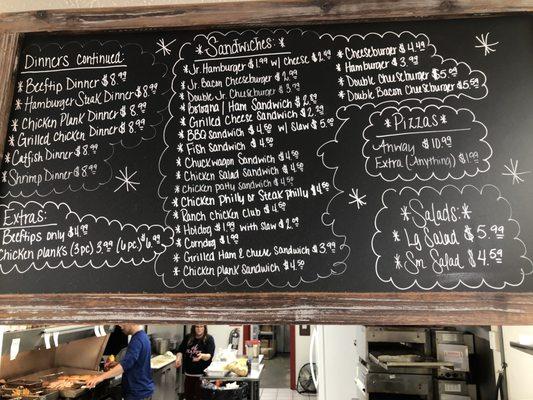 Dinners continued:
* Beeftip Dinner $8.99
* Hamburger Steak Dinner $8.99
* Chicken Plank Dinner $8.99
* Grilled Chicken Dinner $8.99
* Catfish Dinner $8.99
* Shrimp Dinner $8.99
Extras:
* Beeftips only $4.99
* Chicken planks (3pc) 3.99 (6pc) $6.99
* Sandwiches: *
* Jr. Hamburger $1.99 w/ cheese $2.99
* Jr. Bacon Cheeseburger $2.99
* Double Jr. Cheeseburger $3.79
* Bologna / Ham Sandwich $2.89
* Grilled Cheese Sandwich $2.99
* BBQ Sandwich $4.50 w/ Slaw $5.00
* Fish Sandwich $4.50
* Chuckwagon Sandwich $4.50
* Chicken Salad Sandwich $4.50
* Chicken patty Sandwich $4.50
* Chicken Philly or Steak Philly $4.50
* Ranch chicken club $4.50
* Hotdog $1.99 with slaw $2.99
* Corndog $1.99
* Grilled Ham & cheese Sandwich $3.99
* Chicken plank Sandwich $4.50
* Cheeseburger $4.49
* Hamburger $3.99
* Double Cheeseburger $5.49
* Double Bacon Cheeseburger $5.99
* Pizzas *
* Anyway $10.99
Extra (Anything) $1.99
* Salads: *
* Lg Salad $5.99
* Sm Salad $4.59